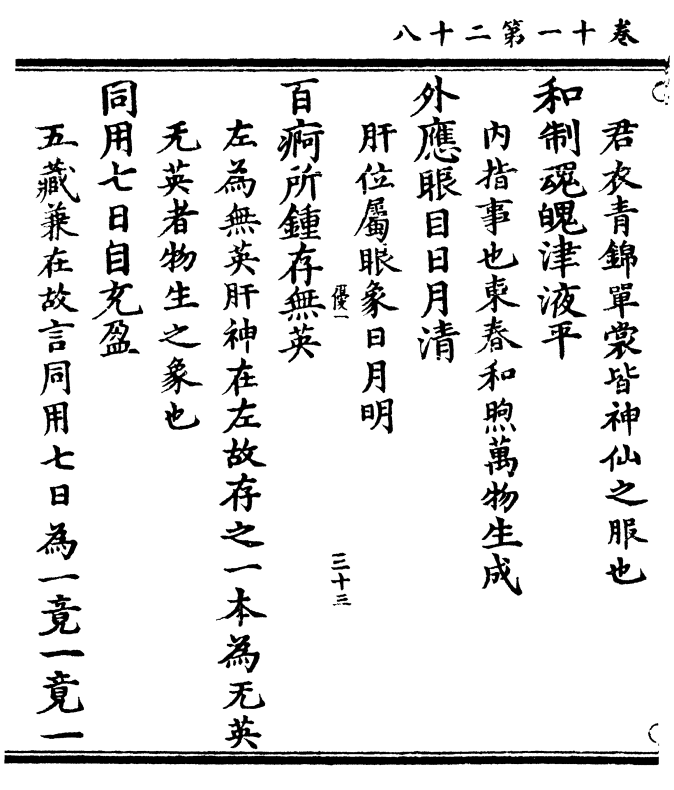 卷十一第二十八
君衣青錦單裳皆神仙之服也
和制魂魄津液平
內指事也東春和煦萬物生成
外應眼目日月清
肝位屬眼象日月明
優一
三十三
百痾所鍾存無英
左為無英肝神在左故存之一本為无英
无英者物生之象也
同用七日自充盈
五藏兼在故言同用七日為一竟一竟一